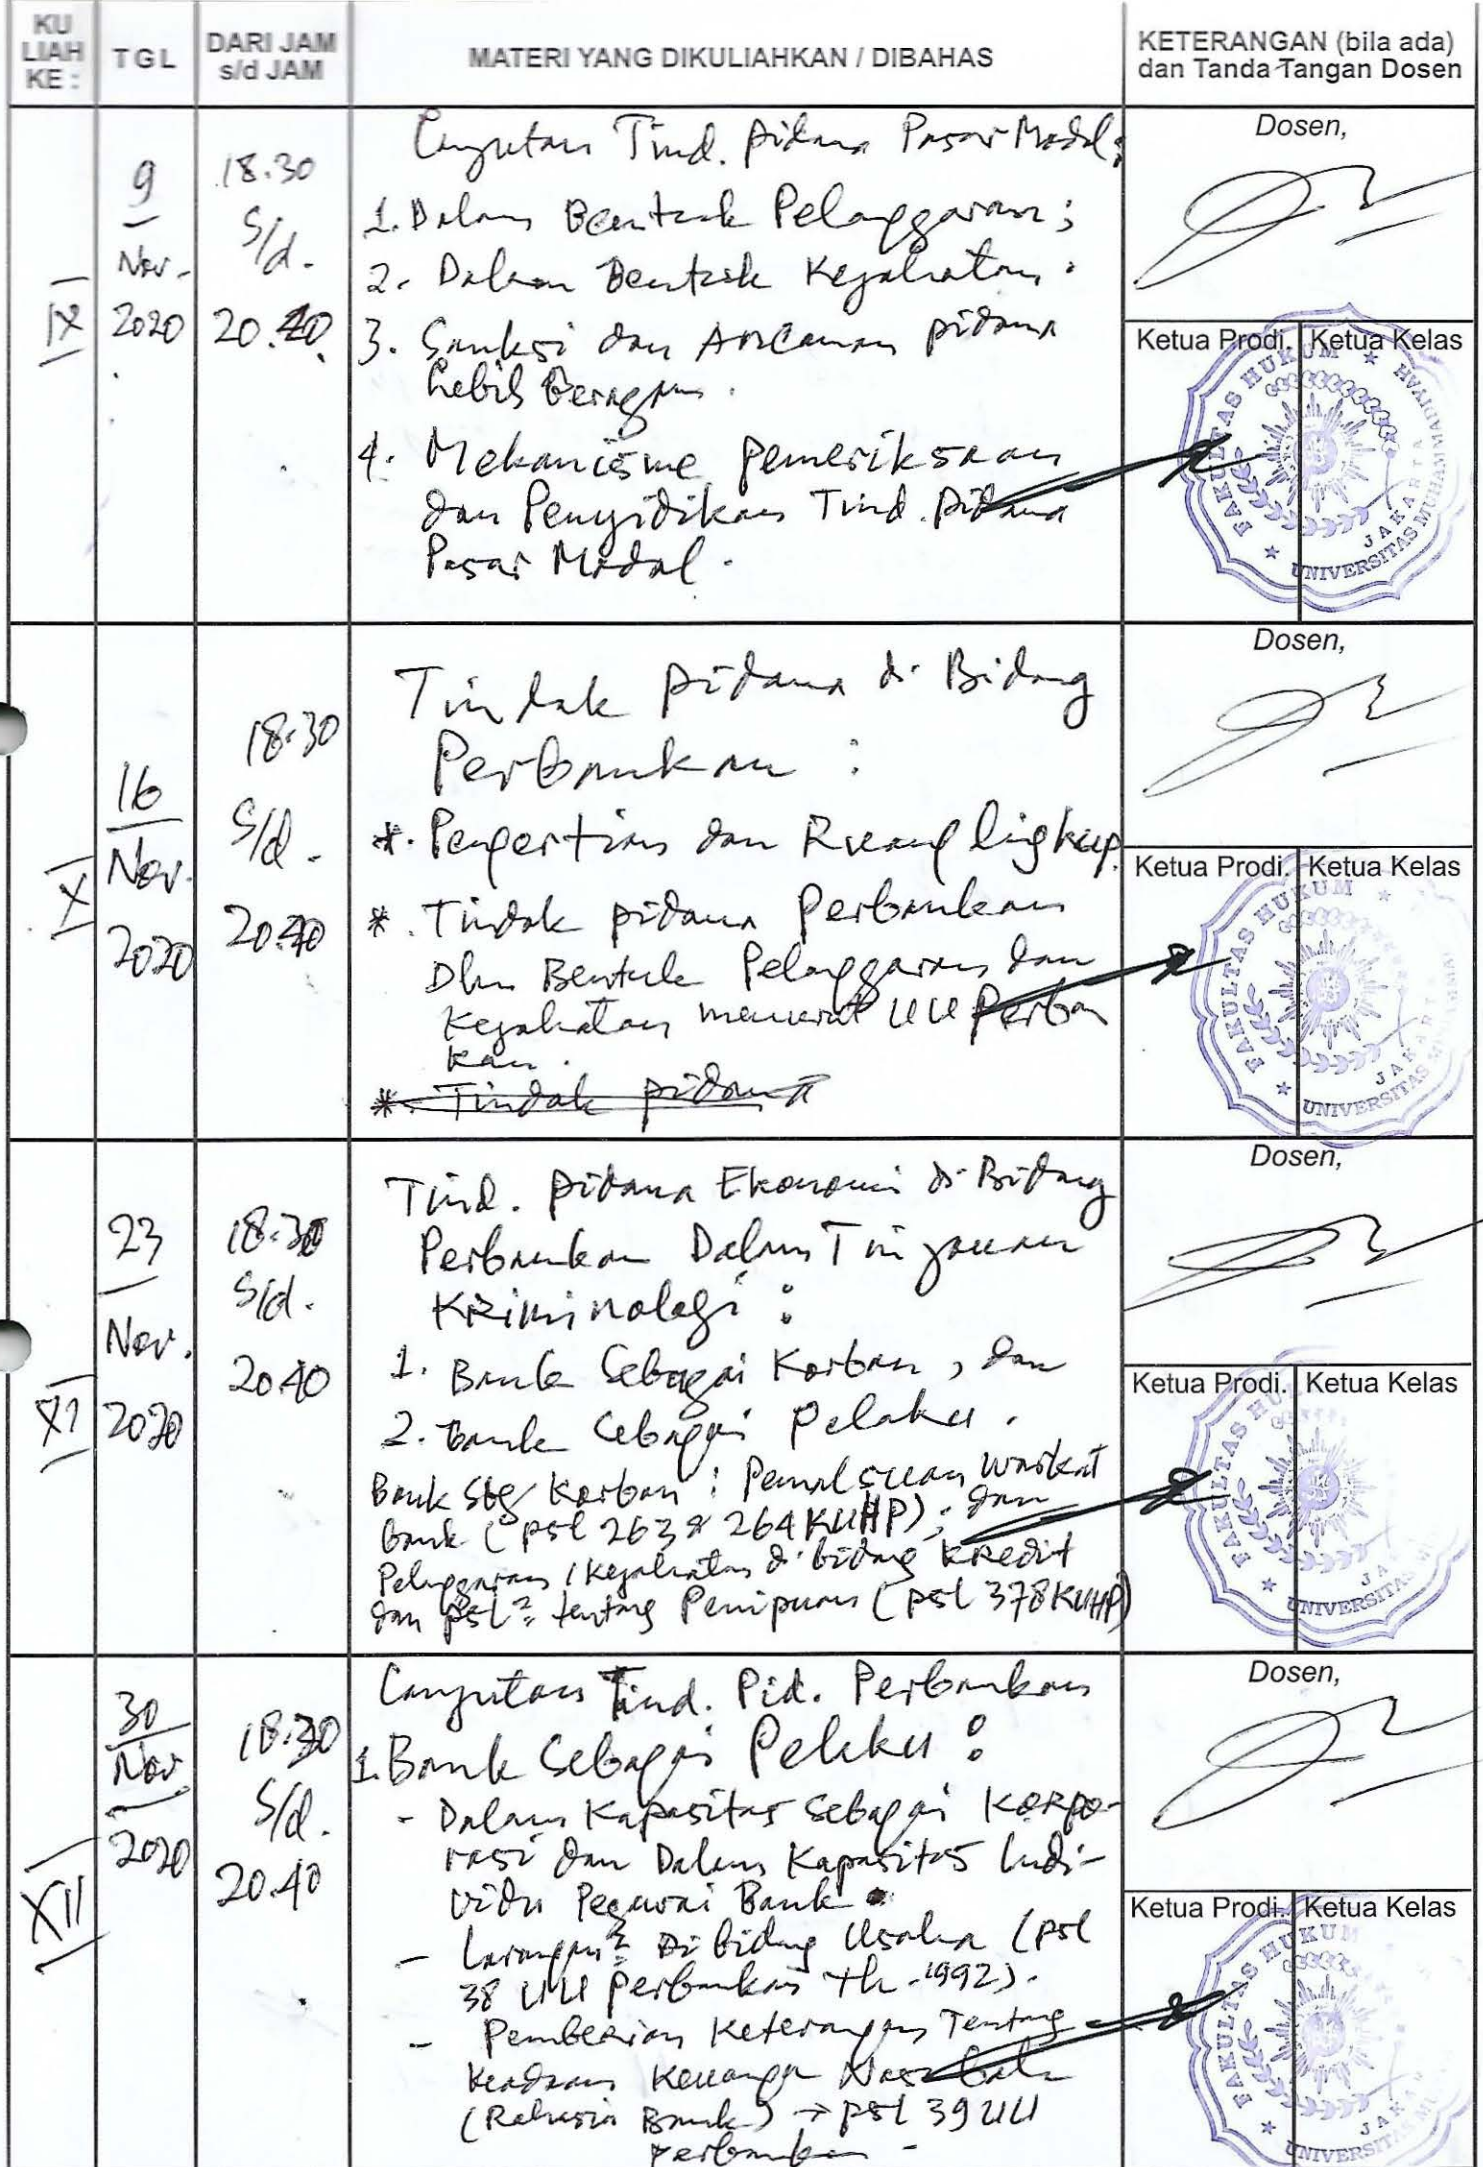 KU LIAH KE :
TGL
DARI JAM s/d JAM
MATERI YANG DIKULIAHKAN / DIBAHAS
KETERANGAN (bila ada) dan Tanda Tangan Dosen
IX
9
Nov.
2020
18.30
S/d.
20.40
Lanjutan Tind. Pidana Pasar Modal:
1. Dalam Bentuk Pelanggaran;
2. Dalam Bentuk Kejahatan.
3. Sanksi dan Ancaman pidana
Lebih Beragam.
4. Mekanisme pemeriksaan
dan Penyidikan Tind. Pidana
Pasar Modal.
Dosen,
Ketua Prodi.
Ketua Kelas
FAKULTAS HUKUM
UNIVERSITAS MUHAMMADIYAH
JAKARTA
X
16
Nov.
2020
18.30
S/d.
20.40
Tindak Pidana di Bidang
Perbankan :
*. Pengertian dan Ruang lingkup.
*. Tindak pidana Perbankan
Dlm Bentuk Pelanggaran dan
Kejahatan menurut UU Perban
kan.
*. Tindak pidana
Dosen,
Ketua Prodi.
Ketua Kelas
FAKULTAS HUKUM
UNIVERSITAS
XI
23
Nov.
2020
18.30
S/d.
20.40
Tind. Pidana Ekonomi di Bidang
Perbankan Dalam Tinjauan
Kriminologi :
1. Bank Sebagai Korban, dan
2. Bank Sebagai Pelaku.
Bank Sbg Korban : Pemalsuan Warkat
bank (psl 263 & 264 KUHP); dan
Pelanggaran / Kejahatan di bidang Kredit
dan psl² tentang Penipuan (psl 378 KUHP)
Dosen,
Ketua Prodi.
Ketua Kelas
FAKULTAS
UNIVERSITAS
XII
30
Nov
2020
18.30
S/d.
20.40
Lanjutan Tind. Pid. Perbankan
1. Bank Sebagai Pelaku :
- Dalam Kapasitas sebagai Korpo-
rasi dan Dalam Kapasitas Indi-
vidu Pegawai Bank.
- Larangan² Di bidang Usaha (psl
38 UU Perbankan th. 1992).
- Pemberian Keterangan Tentang
Keadaan Keuangan Nasabah
(Rahasia Bank) → psl 39 UU
Perbankan -
Dosen,
Ketua Prodi.
Ketua Kelas
FAKULTAS HUKUM
UNIVERSITAS